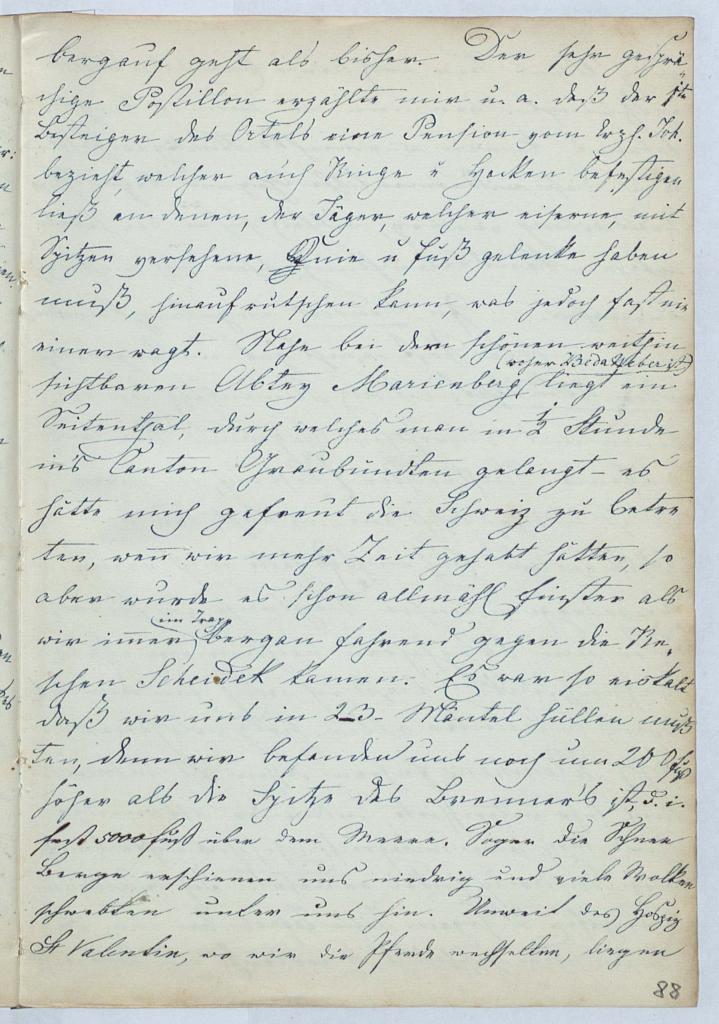 bergauf geht als bisher. Der sehr gesprä-
chige Postillon erzählte mir u. a. daß der 1te
Besteiger des Ortels eine Pension vom Erzh. Joh.
bezieht, welcher auch Ringe u Hacken befestigen
ließ an denen, der Jäger, welcher eiserne, mit
Spitzen versehene, Knie u Fuß gelenke haben
muß, hinaufrutschen kann, was jedoch fast nie
einer wagt. Nahe bei dem schönen weithin
(woher Beda Weber ist)
sichtbaren Abtey Marienberg liegt ein
Seitenthal, durch welches man in ½ Stunde
in's Canton Graubündten gelangt - es
hätte mich gefreut die Schweiz zu betre
ten, wen̄ wir mehr Zeit gehabt hätten, so
aber wurde es schon allmähl finster als
im Trapp
wir im̄er bergan fahrend gegen die Re-
schen Scheidek kamen. Es war so eiskalt
daß wir uns in 2-3- Mäntel hüllen muß
ten, denn wir befanden uns noch um 200 fuß
höher als die Spitze des Brenner's ist, d. i.
fast 5000 fuß über dem Meere. Sogar die Schnee
Berge erschienen uns niedrig und viele Wolken
schwebten unter uns hin. Unweit des Hospiz
St Valentin, wo wir die Pferde wechselten, liegen
88